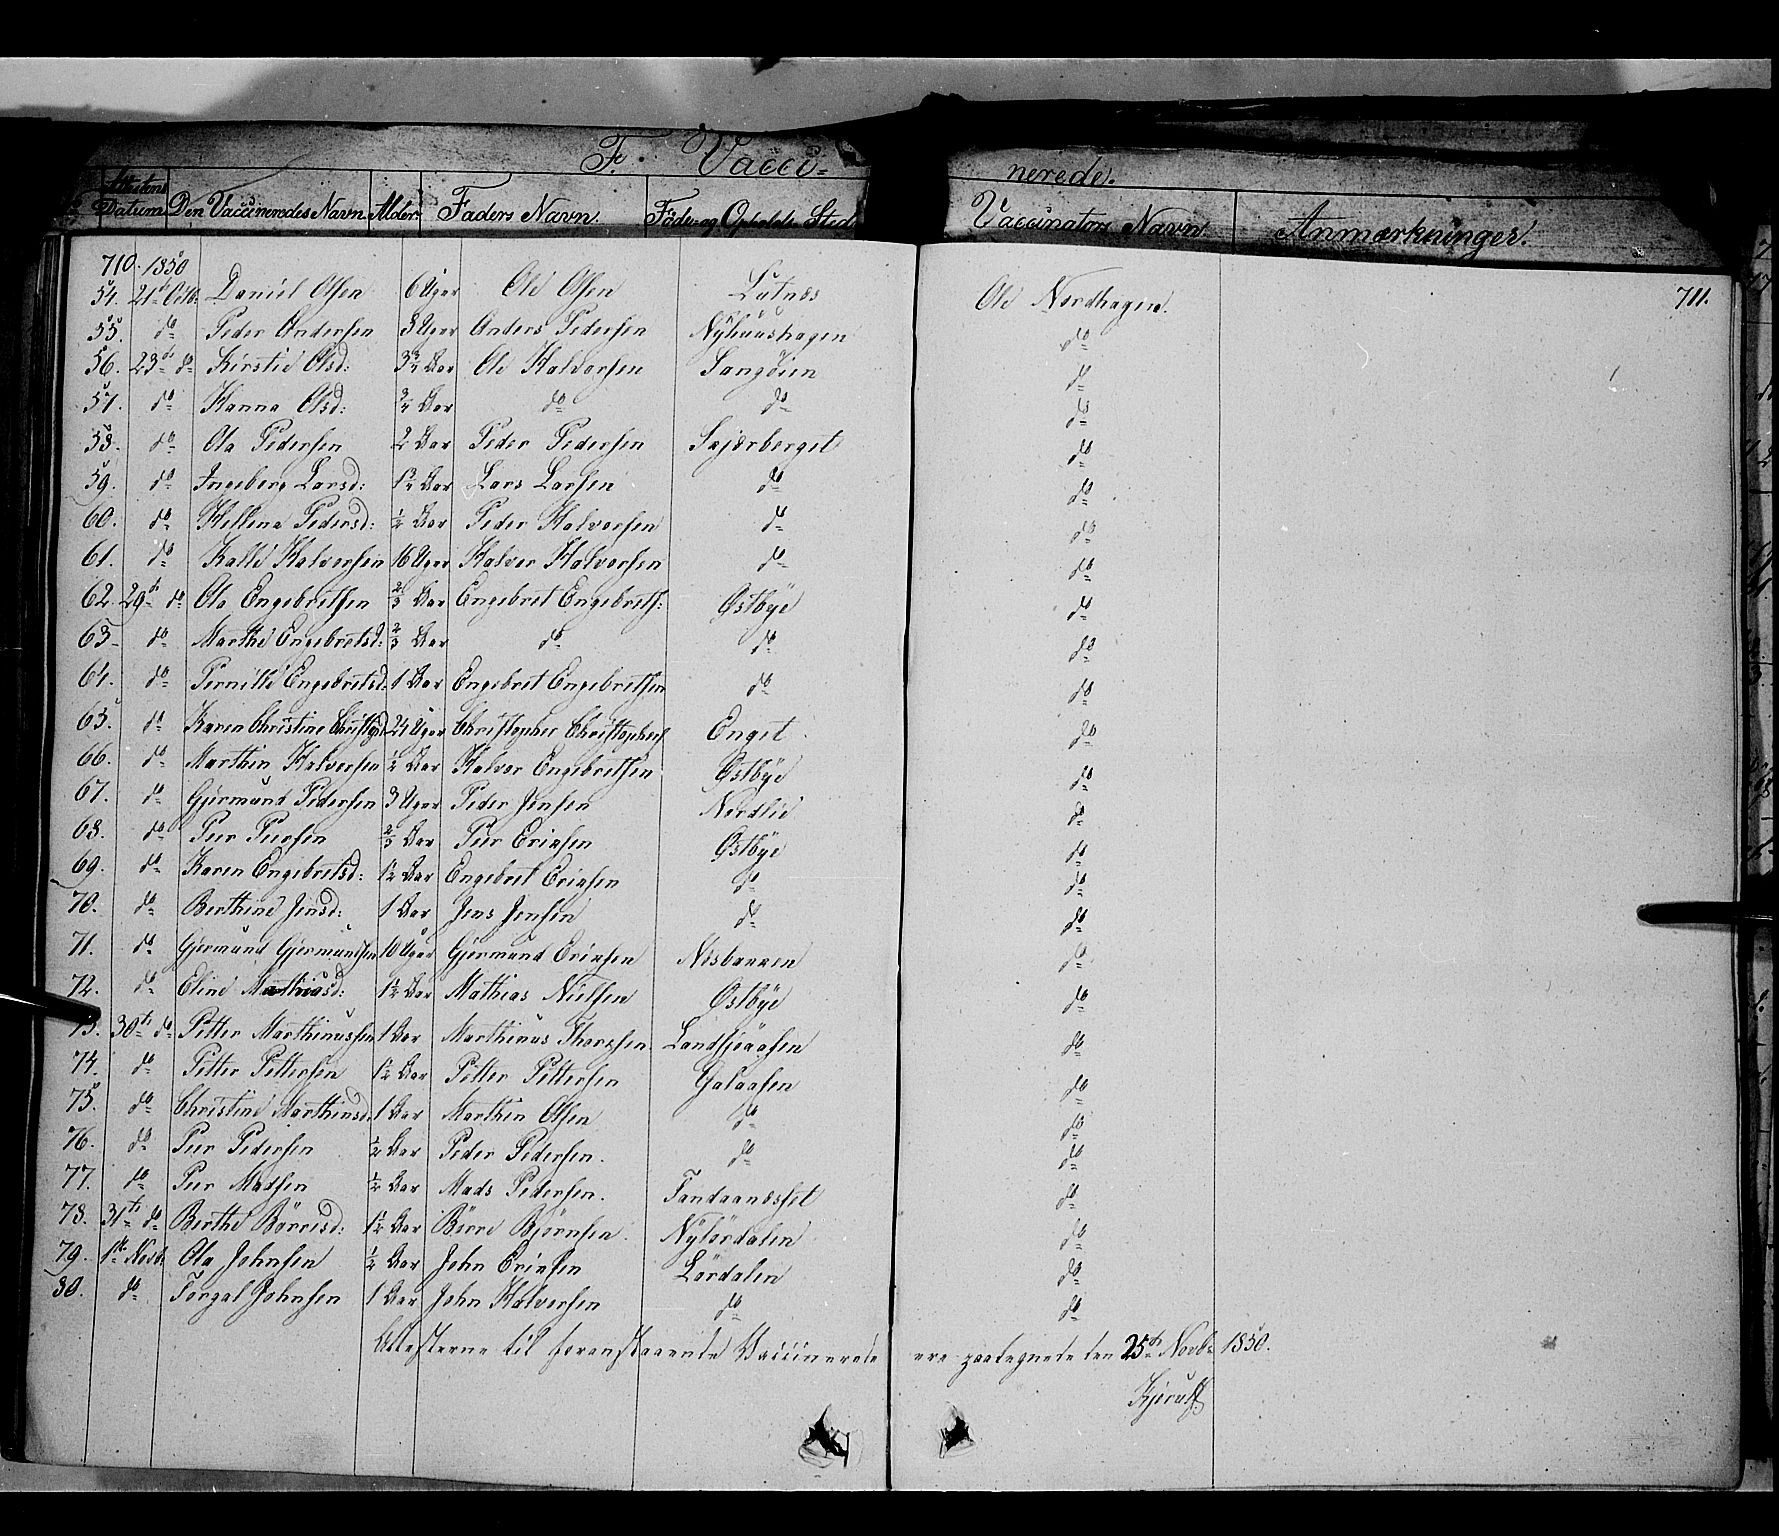 F. Vacci- nerede.
Attestens Datum Den Vaccineredes Navn Alder Faders Navn Föde- og Opholds Sted Vaccinators Navn Anmærkninger.
710. 1850 711.
54. 21d Octb. Daniel Olsen 6 Uger Ole Olsen Lutnæs Ole Nordhagen.
55. do Peder Andersen 3 Uger Anders Pedersen Nyhuushagen do
56. 23d do Kirstie Olsd: 3 3/4 Aar Ole Halvorsen Sangöien do
57. do Hanna Olsd: 3/4 Aar do do do
58. do Ola Pedersen 2 Aar Peder Pedersen Sejærberget do
59. do Ingeborg Larsd: 1 3/4 Aar Lars Larsen do do
60. do Hellena Pedersd: 1/2 Aar Peder Halvorsen do do
61. do Kalle Halvorsen 16 Uger Halvor Halvorsen do do
62. 29d do Ola Engebrethsen 2/3 Aar Engebret Engebreths: Östbye do
63. do Marthe Engebretsd: 2/3 Aar do do do
64. do Pernille Engebretsd: 1 Aar Engebret Engebrethsen do do
65. do Karen Christine 24 Uger Christopher Christophers Enget do
66. do Marthin Halvorsen 1/2 Aar Halvor Engebrethsen Östbye do
67. do Gjermund Pedersen 3 Uger Peder Jensen Nordlie do
68. do Peer Peersen 2/3 Aar Peer Eriksen Östbye do
69. do Karen Engebretsd: 1 1/2 Aar Engebret Eriksen do do
70. do Berthine Jensd: 1 Aar Jens Jensen do do
71. do Gjermund Gjermundsen 10 Uger Gjermund Eriksen Næsbakken do
72. do Eline Mathiasd: 1 1/2 Aar Mathias Nielsen Östbye do
73. 30te do Petter Marthinussen 1 Aar Marthinus Thorsen Landsjöaasen do
74. do Petter Pettersen 1 1/2 Aar Petter Pettersen Galaasen do
75. do Christine Marthinsd: 1 Aar Marthin Olsen do do
76. do Peer Pedersen 1/2 Aar Peder Pedersen. do do
77. do Peer Madsen 1/2 Aar Mads Pedersen. Tandaanæsset do
78. 31te do Berthe Börresd: 1 1/2 Aar Börre Björnsen. Nylördalen do
79. 1ste Novb. Ola Johnsen 1/2 Aar John Eriksen Lördalen do
80. do Torgal Johnsen 1 Aar John Halvorsen do do
Attesterne til foranstaaende Vaccinerede ere paategnede den 25de Novbr 1850.
Kjerulf